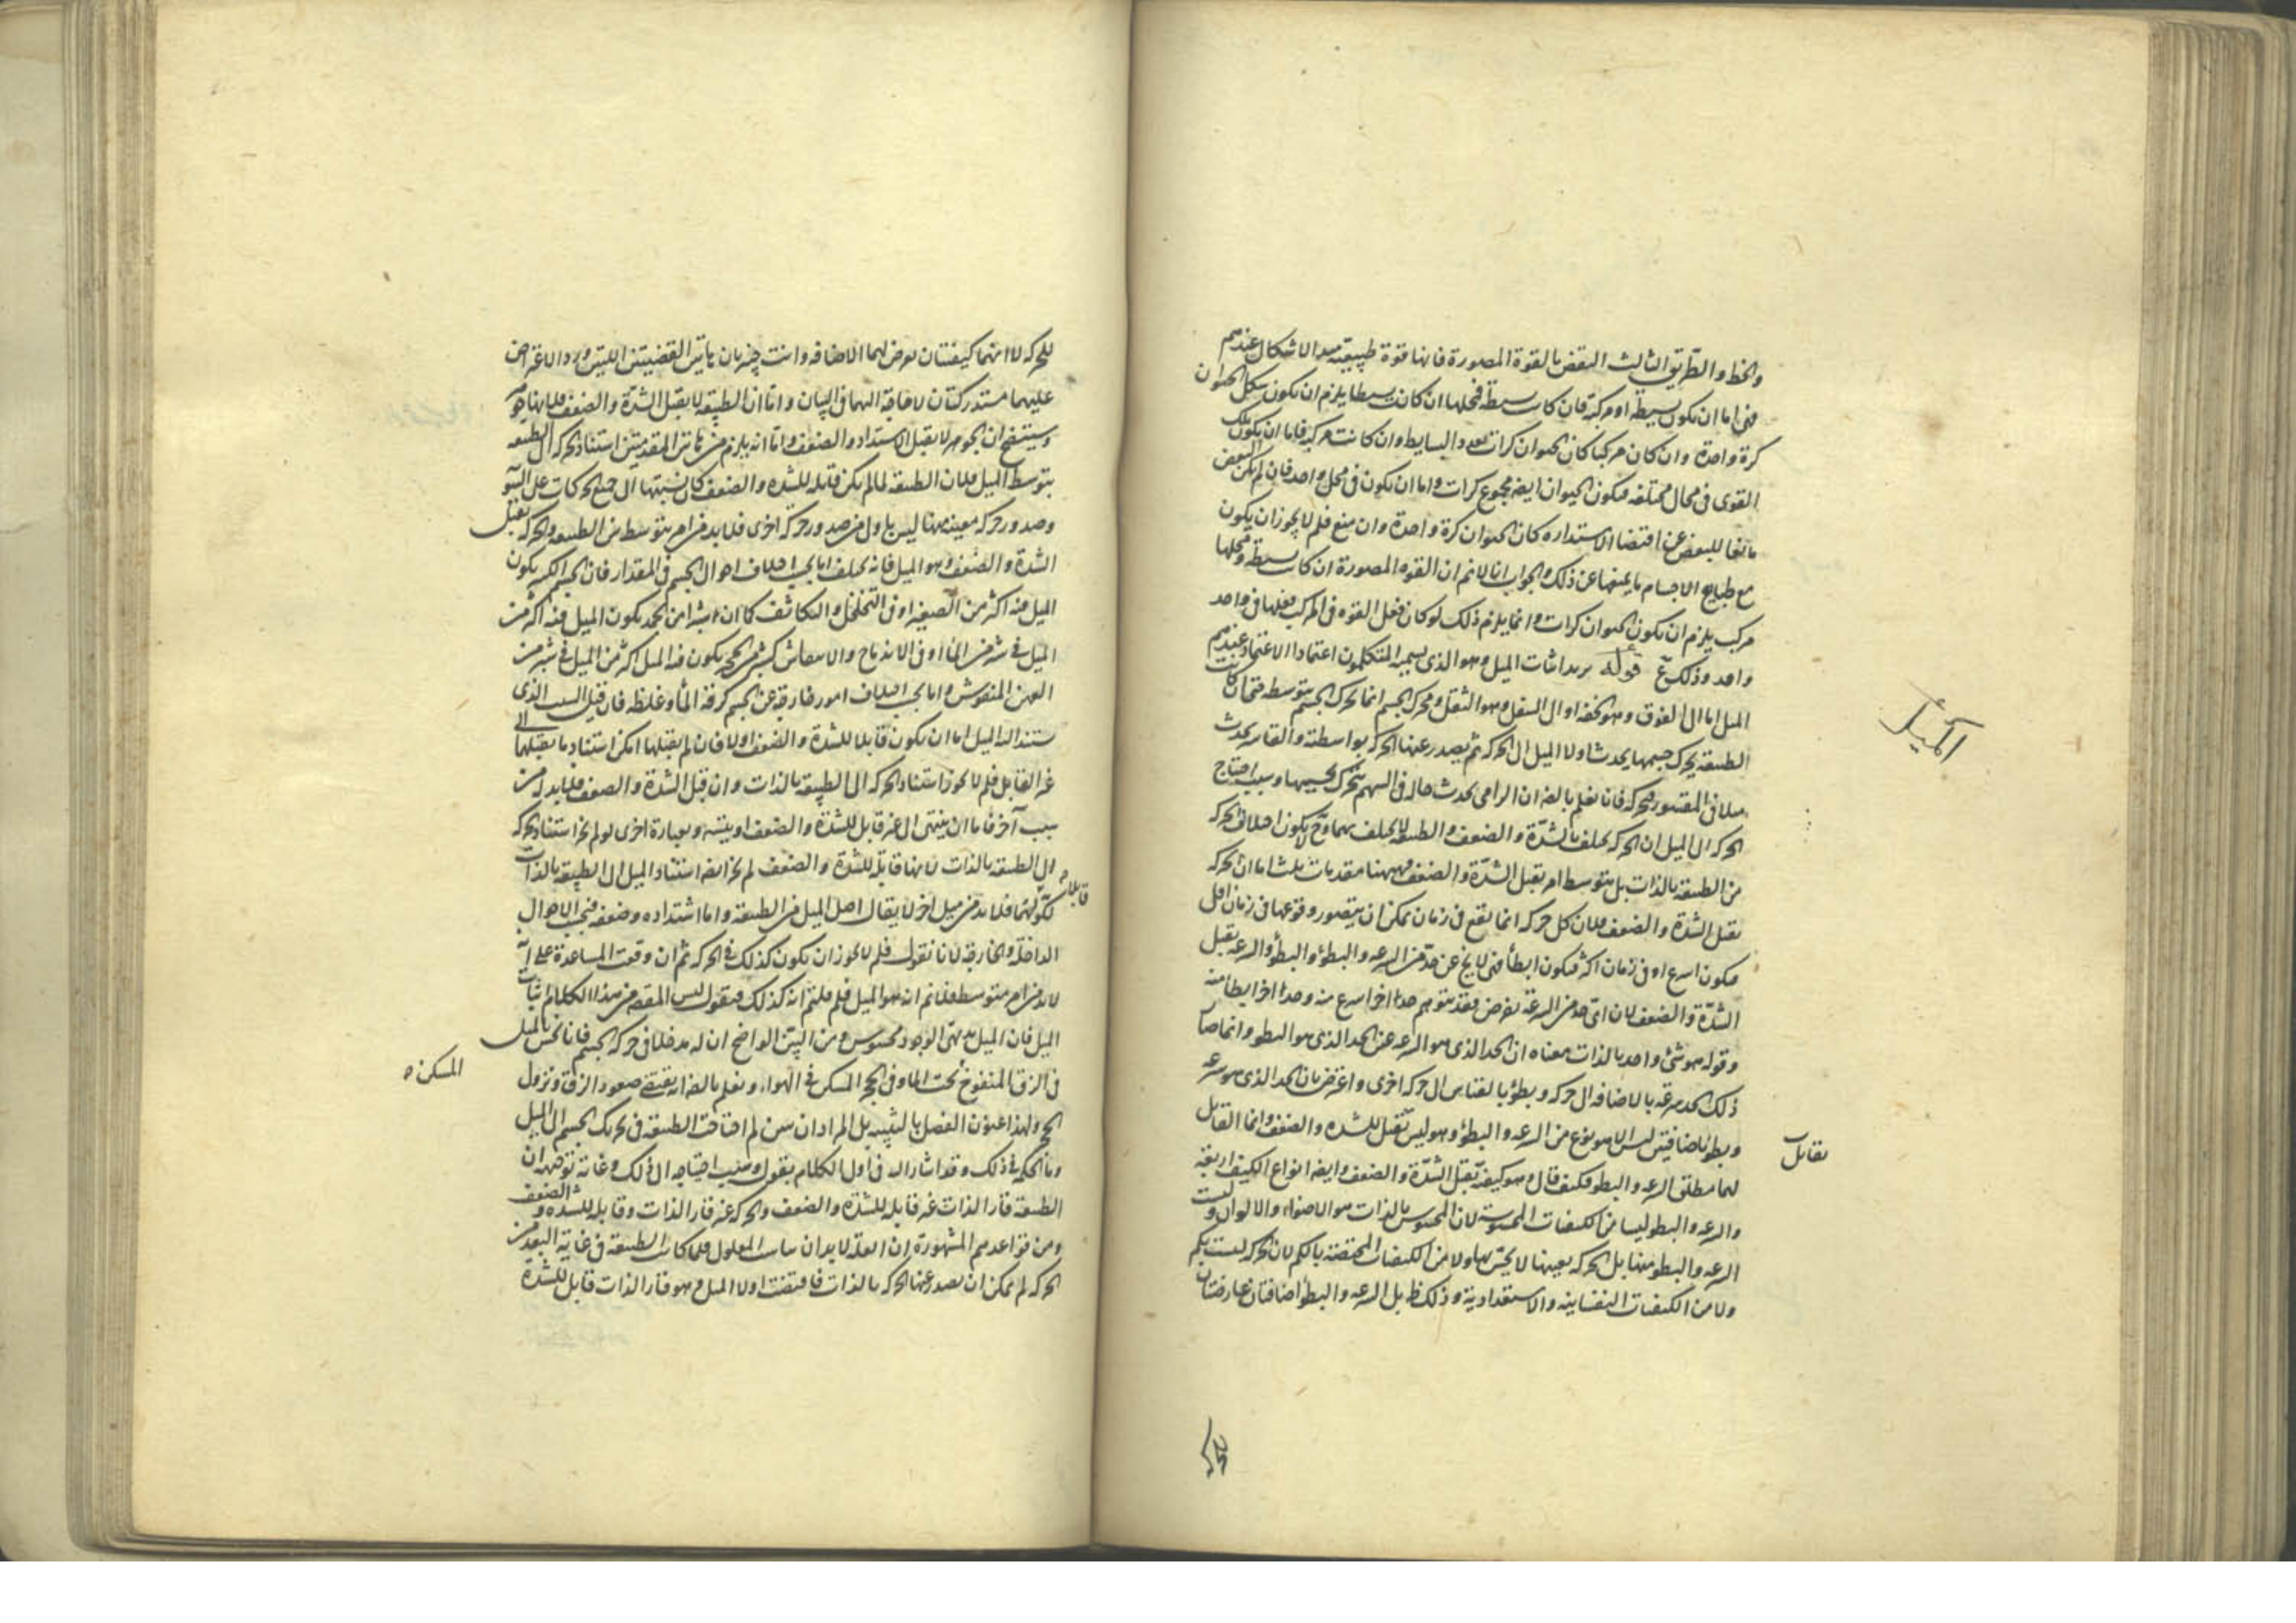 والخط والطريق الثالث النقض بالقوة المصورة فانها قوة طبيعية مبدا الاشكال عندهم
فهى اما ان تكون بسيطة او مركبة فان كانت بسيطة فمحلها ان كان بسيطا يلزم ان يكون شكل الحيوان
كرة واحدة وان كان مركبا كان الحيوان كرات بعدد البسايط وان كانت مركبة فاما ان يكون تلك
القوى فى محال مختلفة فيكون الحيوان ايضا مجموع كرات واما ان يكون فى محل واحد فان لم يكن البعض
مانعا للبعض عن اقتضا الاستداره كان الحيوان كرة واحدة وان منع فلم لا يجوز ان يكون
مع طبايع الاجسام ما يمنعها عن ذلك والجواب انا لا نم ان القوه المصورة ان كانت بسيطة ومحلها
مركب يلزم ان يكون الحيوان كرات وانما يلزم ذلك لو كان فعل القوه فى المركب فعلها فى واحد
واحد وذلك مم قوله يريد اثبات الميل وهو الذى يسميه المتكلمون اعتمادا الاعتماد عندهم
الميل اما الى الفوق وهو الخفه او الى السفل وهو الثقل ومحرك الجسم انما يحرك الجسم بتوسطه فمتى كانت
الطبيعة يحرك جسمها يحدث اولا الميل الى الحركه ثم يصدر عنها الحركه بواسطته والقاسر يحدث
ميلا فى المقسور فيحركه فانا نعلم بالضه ان الرامى يحدث حاله فى السهم يتحرك بحسبها وسبب احتياج
الحركه الى الميل ان الحركه يختلف بالشدة والضعف والطبيعه لا يختلف بهما وح لا يكون اختلاف الحركه
من الطبيعة بالذات بل بتوسط امر يقبل الشدة والضعف فههنا مقدمات ثلث اما ان الحركه
يقبل الشدة والضعف فلان كل حركه انما تقع فى زمان يمكن ان يتصور وقوعها فى زمان اقل
فيكون اسرع او فى زمان اكثر فيكون ابطأ فهى لا يخ عن حد من السرعه والبطؤ والبطؤ والسرعه يقبل
الشدة والضعف لان اى حد من السرعة يفرض فقد يتوهم حدا اخر اسرع منه وحدا اخر ابطا منه
وقوله هو شئ واحد بالذات معناه ان الحد الذى هو السرعه عين الحد الذى هو البطو وانما صار
ذلك الحد سرعة بالاضافه الى حركه وبطؤا بالقياس الى حركه اخرى واعترض بان الحد الذى هو سرعه
وبطؤ اضافيتين ليس الا هو نوع من السرعه والبطؤ وهو ليس يقبل للشده والضعف وانما القابل
لهما مطلق السرعه والبطو فكيف قال وهو كيفية يقبل الشدة والضعف وايضا انواع الكيف اربعة
والسرعه والبطو ليسا من الكيفيات المحسوسة لان المحسوس بالذات هو الاضواء والالوان وليست
السرعه والبطو منها بل الحركه بعينها لا يحس بها ولا من الكيفيات المختصة بالكم لان الحركه ليست بكم
ولا من الكيفيات النفسانيه والاستعدادية وذلك ظ بل السرعه والبطؤ اضافتان عارضتان
الميل
تقابل
للحركه لا انهما كيفيتان يعرض لهما الاضافه وانت خبير بان هاتين القضيتين اللتين ورد الاعتراض
عليهما مستدركتان لا حاجة اليهما فى البيان واما ان الطبيعه لا يقبل الشدة والضعف فلانها جوهر
وسيتضح ان الجوهر لا يقبل الاشتداد والضعف واما انه يلزم من هاتين المقدمتين استناد الحركه الى الطبيعه
بتوسط الميل فلان الطبيعه لما لم يكن قابله للشده والضعف كان نسبتها الى جميع الحركات على السوآ
وصدور حركه معينه منها ليس باولى من صدور حركه اخرى فلا بد من امر متوسط بين الطبيعه والحركه يقبل
الشدة والضعف وهو الميل فانه يختلف اما بحسب اختلاف احوال الجسم فى المقدار فان الجسم الكبير يكون
الميل فيه اكثر من الصغير او فى التخلخل والتكاثف كما ان شبرا من الحجر يكون الميل فيه اكثر من
الميل فى شبر من الماء او فى الاندماج والانتفاش كشبر من الحجر يكون فيه الميل اكثر من الميل فى شبر من
العهن المنفوش واما بحسب اختلاف امور خارجة عن الجسم كرقة الماء وغلظه فان قيل السبب الذى
يستند اليه الميل اما ان يكون قابلا للشدة والضعف او لا فان لم يقبلها امكن استناد ما يقبلهما الى
غير القابل فلم لا يجوز استناد الحركه الى الطبيعة بالذات وان قبل الشدة والضعف فلا بد له من
سبب آخر فاما ان ينتهى الى غير قابل للشدة والضعف او يتسلسل وبعبارة اخرى لو لم يجز استناد الحركه
الى الطبيعه بالذات لانها قابلة للشدة والضعف لم يجز ايضا استناد الميل الى الطبيعة بالذات
لكونهما قابلا فلا بد من ميل اخر لا يقال اصل الميل من الطبيعة واما اشتداده وضعفه فبحسب الاحوال
الداخلة والخارجة لانا نقول فلم لا يجوز ان يكون كذلك فى الحركه ثم ان وقعت المساعدة على انه
لا بد من امر متوسط فلا نم انه هو الميل فلم قلتم انه كذلك فنقول ليس المقصود من هذا الكلام اثبات
الميل فان الميل بديهى الوجود محسوس ومن البين الواضح ان له مدخلا فى حركه الجسم فانا نحس بالميل
فى الزق المنفوخ تحت الماء وفى الحجر المسكن فى الهواء ونعلم بالضه انه يقتضى صعود الزق ونزول
الحجر ولهذا عنون الفصل بالتنبيه بل المراد ان يبين لم احتاجت الطبيعه فى تحريك الجسم الى الميل
وما الحكمة فى ذلك وقد اشار اليه فى اول الكلام بقوله وسبب احتياجه الى ذلك وغاية توجيهه ان
الطبيعة قار الذات غير قابله للشدة والضعف والحركه غير قار الذات وقابله للشده والضعف
ومن قواعدهم المشهورة ان العلة لا بد ان يناسب المعلول فلما كانت الطبيعة فى غاية البعد من
الحركه لم يمكن ان يصدر عنها الحركه بالذات فاقتضت اولا الميل وهو قار الذات قابل للشدة
المسكن ه